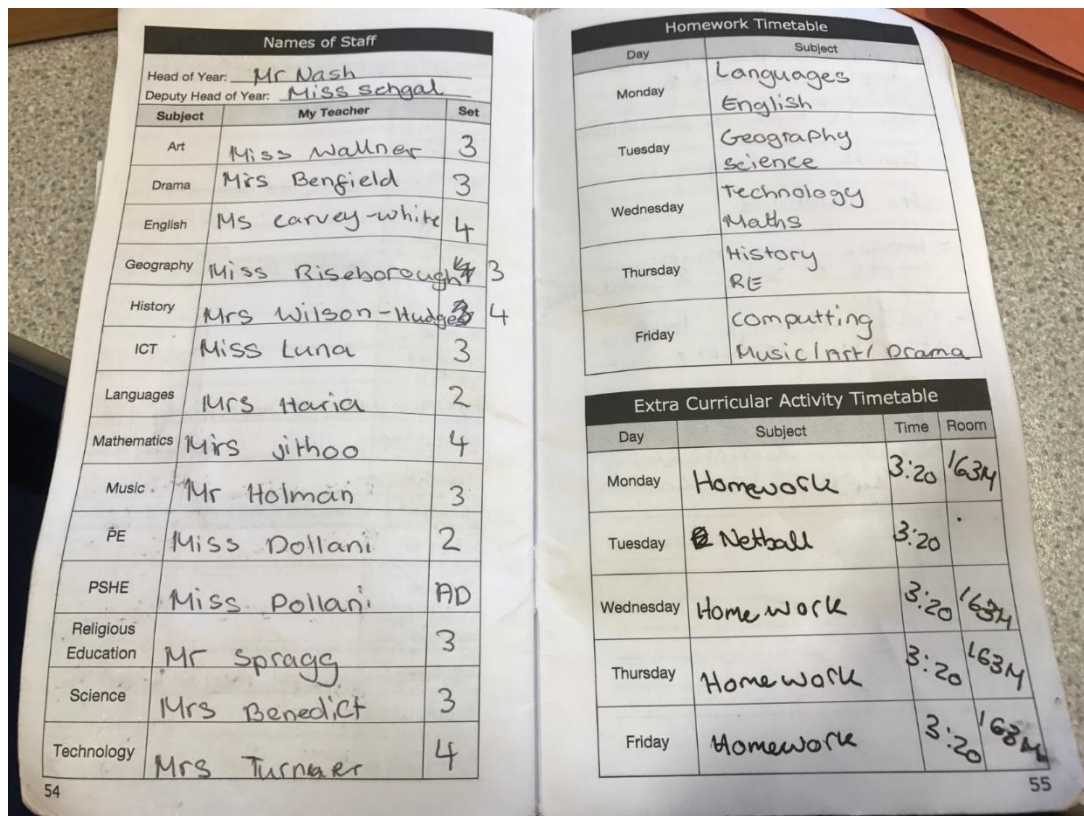 Names of Staff
Head of Year: Mr Nash
Deputy Head of Year: Miss Sehgal
Subject My Teacher Set
Art Miss Wallner 3
Drama Mrs Benfield 3
English Ms carvey-white 4
Geography Miss Riseborough 3
History Mrs Wilson-Hudges 4
ICT Miss Luna 3
Languages Mrs Haria 2
Mathematics Mrs jithoo 4
Music Mr Holman 3
PE Miss Dollani 2
PSHE Miss Pollani AD
Religious
Education Mr Spragg 3
Science Mrs Benedict 3
Technology Mrs Turner 4
54
Homework Timetable
Day Subject
Monday Languages
English
Tuesday Geography
science
Wednesday Technology
Maths
Thursday History
RE
Friday computting
Music/Art/Drama
Extra Curricular Activity Timetable
Day Subject Time Room
Monday Homework 3:20 163M
Tuesday Netball 3:20
Wednesday Homework 3:20 163M
Thursday Homework 3:20 163M
Friday Homework 3:20 163M
55